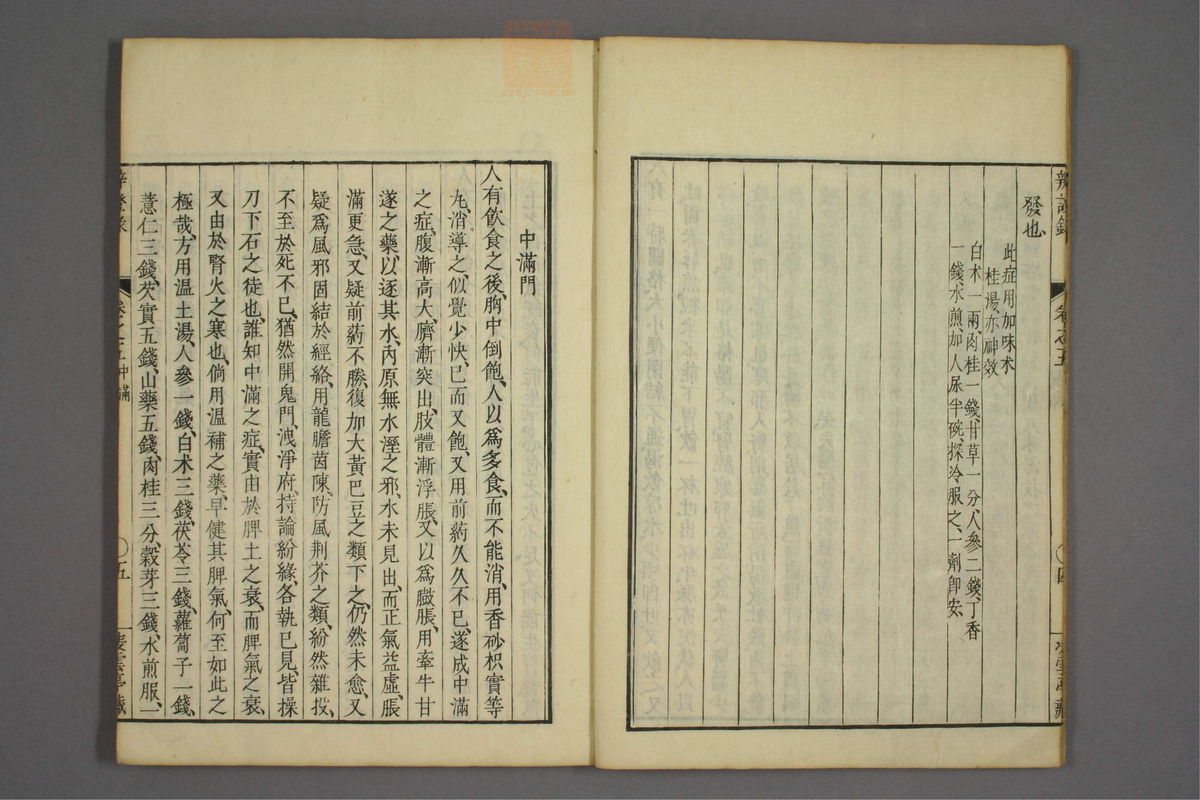 發也、
此症用加味术
桂湯、亦神效
白术一兩、肉桂一錢、甘草一分、人參二錢、丁香
一錢、水煎、加人尿半碗、探冷服之、一劑卽安、
中滿門
人有飮食之後、胸中倒飽、人以爲多食、而不能消、用香砂枳實等
丸、消導之、似覺少快、已而又飽、又用前葯、久久不已、遂成中滿
之症、腹漸高大、臍漸突出、肢體漸浮脹、又以爲臌脹、用牽牛甘
遂之藥、以逐其水、內原無水溼之邪、水未見出、而正氣益虛、脹
滿更急、又疑前葯不勝、復加大黃巴豆之類下之、仍然未愈、又
疑爲風邪固結於經絡、用龍膽茵陳、防風荆芥之類、紛然雜投、
不至於死不已、猶然開鬼門、洩淨府、持論紛緣、各執已見、皆操
刀下石之徒也、誰知中滿之症、實由於脾土之衰、而脾氣之衰、
又由於腎火之寒也、倘用溫補之藥、早健其脾氣、何至如此之
極哉、方用溫土湯、人參一錢、白术三錢、茯苓三錢、蘿蔔子一錢、
薏仁三錢、芡實五錢、山藥五錢、肉桂三分、穀芽三錢、水煎服、一
卷之五中滿